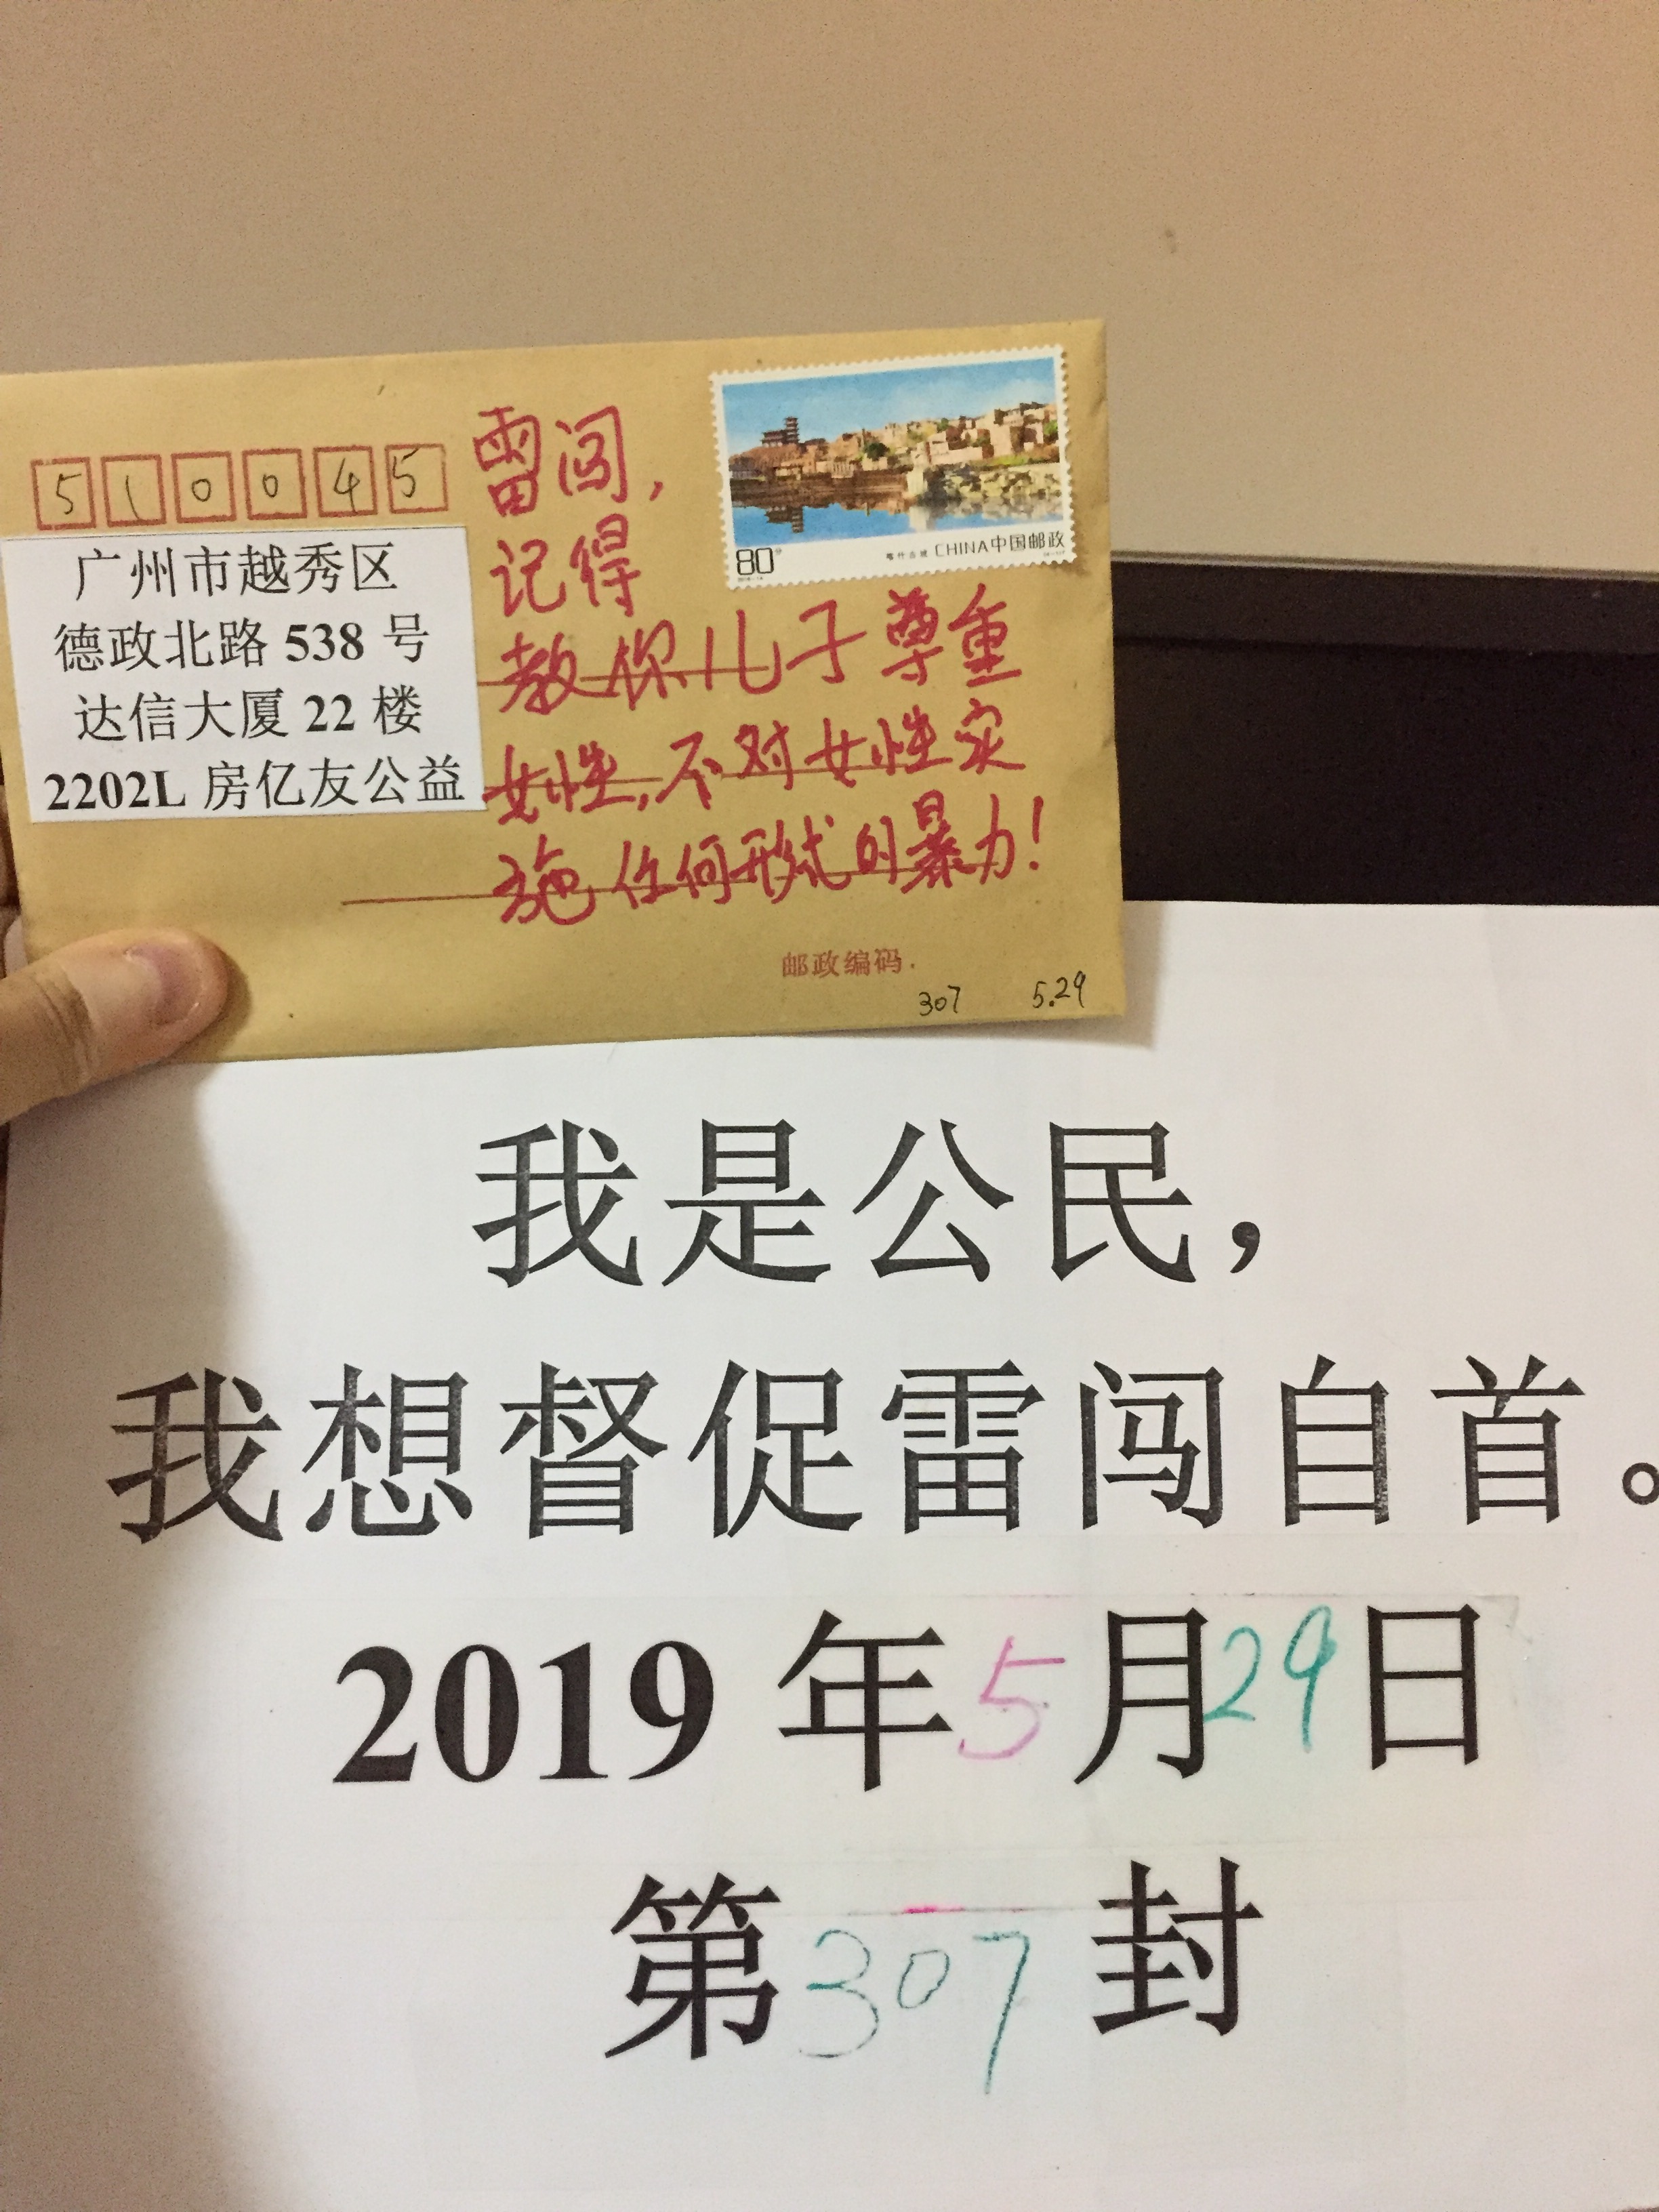 510045
广州市越秀区
德政北路 538 号
达信大厦 22 楼
2202L 房亿友公益
雷闯,
记得
教你儿子尊重
女性,不对女性实
施任何形式的暴力!
80分
CHINA中国邮政
邮政编码
307 5.29
我是公民，
我想督促雷闯自首。
2019 年 5 月 29 日
第 307 封